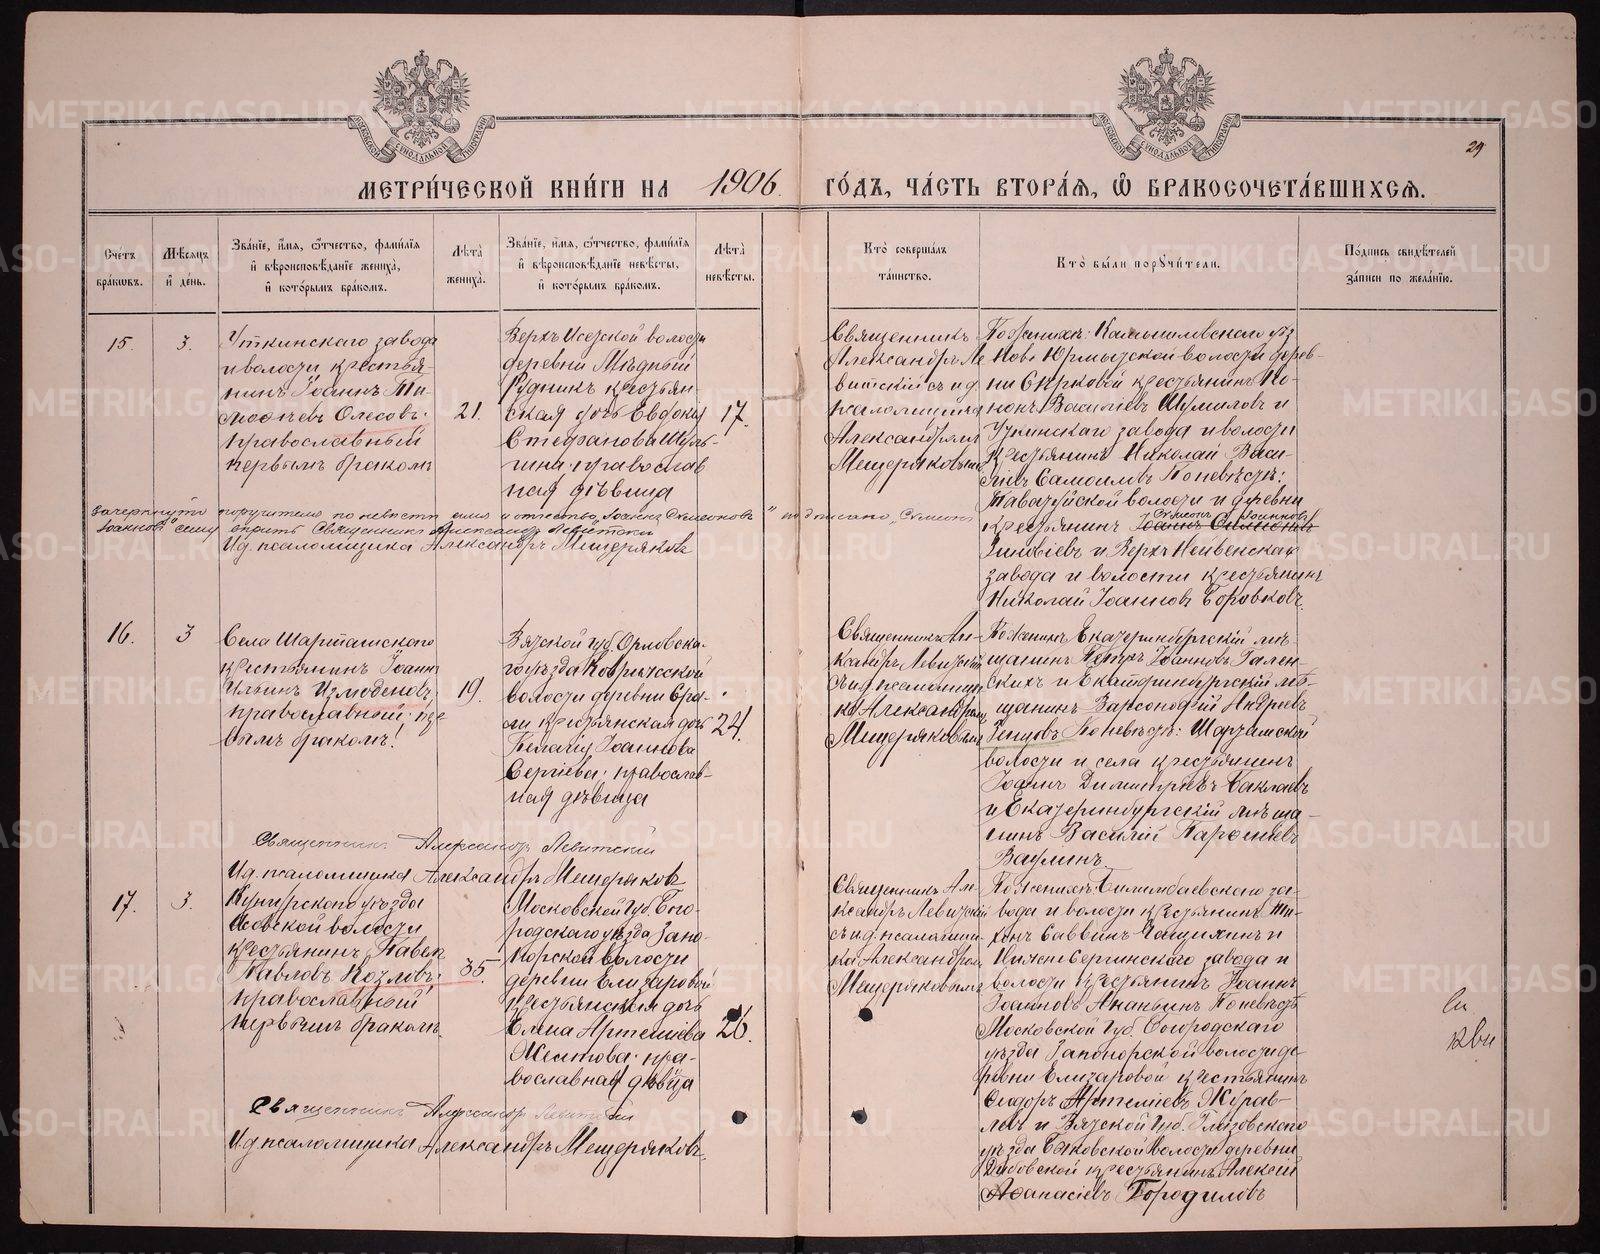 МЕТРИ́ЧЕСКОЙ КНИ́ГИ НА 1906 ГО́ДЪ, ЧА́СТЬ ВТОРА́Я, Ѿ БРАКОСОЧЕТА́ВШИХСЯ.
29
Сче́тъ бра́кѡвъ.
Мѣ́сяцъ и҆ де́нь.
Зва́нїе, и҆́мя, ѻ҆́тчество, фами́лїя и҆ вѣроисповѣ́данїе жениха̀, и҆ кото́рымъ бра́комъ.
Лѣ́та жениха̀.
Зва́нїе, и҆́мя, ѻ҆́тчество, фами́лїя и҆ вѣроисповѣ́данїе невѣ́сты, и҆ кото́рымъ бра́комъ.
Лѣ́та невѣ́сты.
Кто̀ соверша́лъ та́инство.
Кто̀ бы́ли порꙋчи́тели.
По́дпись свидѣ́телей за́писи по жела́нїю.
15.
3.
Уткинскаго завода
и волости крестья-
нинъ Іоаннъ Ти-
моѳеевъ Олесовъ.
православный
первымъ бракомъ
21.
Верхъ Исетской волости
деревни Мѣдный
Рудникъ крестьян-
ская дочь Евдокія
Стефанова Шуль-
гина православ
ная дѣвица
17.
Священникъ
Александръ Ле
витскій съ и.д.
псаломщика
Александромъ
Мещеряковымъ
По женихѣ: Камышловскаго уѣз
Ново Юрмытской волости дерев-
крестьянинъ
Васильевъ Шумиловъ и
Уткинскаго завода и волости
крестьянинъ Николай Васи-
льевъ Самоиловъ По невѣстѣ:
Таватуйской волости и деревни
крестьянинъ Іоаннъ Симеоновъ
Симеонъ Іоанновъ
Зиновіевъ и Верхъ Нейвинскаго
завода и волости крестьянинъ
Николай Іоанновъ Боровковъ.
зачеркнуто поручителю по невѣстѣ имя и отчество „Іоаннъ Симеоновъ" надписано „Симеонъ
Іоанновъ" сему вѣрить Священникъ Александръ Левитскій
И.д. псаломщика Александръ Мещеряковъ
16.
3
Села Шарташскаго
крестьянинъ Іоаннъ
Ильинъ Измоденовъ,
православный; пер
вымъ бракомъ.
19.
Вятской губ. Орловска-
го уѣзда
волости деревни
крестьянская дочь
Пелагія Іоаннова
Сергіева; православ-
ная дѣвица
24.
Священникъ Але-
ксандръ Левитскій
съ и.д. псаломщи
ка Александромъ
Мещеряковымъ
По женихѣ Екатеринбургскій мѣ-
щанинъ Петръ Іоанновъ Гален-
скихъ и Екатеринбургскій мѣ-
щанинъ Варсонофій Андреевъ
По невѣстѣ: Шарташской
волости и села крестьянинъ
Іоаннъ Димитріевъ Баклаевъ
и Екатеринбургскій мѣща-
нинъ Василій
Ваулинъ.
Священникъ Александръ Левитскій
И.д. псаломщика Александръ Мещеряковъ
17.
3.
Кунгурскаго уѣзда
Асовской волости
крестьянинъ Павелъ
Павловъ Козловъ;
православный
первымъ бракомъ.
35.
Московской губ. Бого-
родскаго уѣзда Запо-
норской волости
деревни Елизаровой
крестьянская дочь
Елена Артеміева
пра-
вославная дѣвица
26.
Священникъ Але-
ксандръ Левитскій
съ и.д. псаломщи-
ка Александромъ
Мещеряковымъ
По женихѣ Билимбаевскаго за-
вода и волости крестьянинъ Ти-
хонъ Саввинъ и
Нижне Сергинскаго завода и
волости крестьянинъ Іоаннъ
Іоанновъ Ананьинъ По невѣстѣ
Московской губ. Богородскаго
уѣзда Запонорской волости де-
ревни Елизаровой крестьянинъ
Сидоръ Артеміевъ Журав-
левъ и Вятской губ. Глазовскаго
уѣзда волости деревни
крестьянинъ Алексій
Аѳанасіевъ Городиловъ
Священникъ Александръ Левитскій
И.д. псаломщика Александръ Мещеряковъ.
METRIKI.GASO-URAL.RU